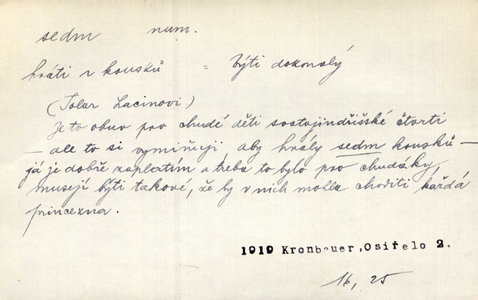 sedm num.
hráti z kousků = býti dokonalý
(Tolar Lacinovi)
Je to obuv pro chudé děti svatojindřišské čtvrti
– ale to si vymiňuji, aby hrály sedm kousků –
já je dobře zaplatím a třeba to bylo pro chudáky,
musejí býti takové, že by v nich mohla choditi každá
princezna.
1919 Kronbauer, Osiřelo 2.
16, 25